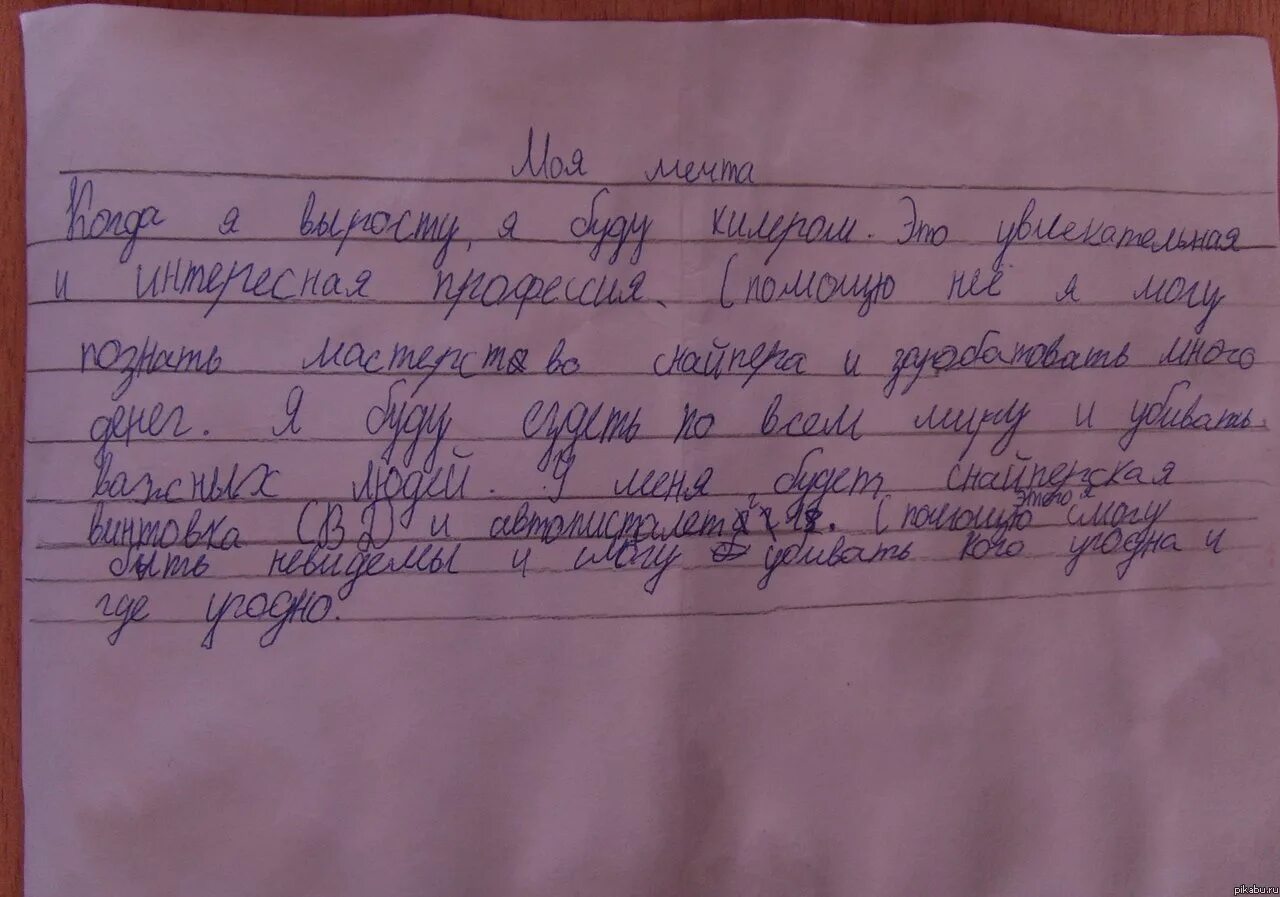 Моя мечта
Когда я вырасту, я буду килером. Это увлекательная
и интересная профессия. С помощю неё я могу
познать мастерство снайпера и зарабатовать много
денег. Я буду ездеть по всем миру и убивать
важных людей. У меня будет снайперская
винтовка СВД и автописталет. С помощю этого я смогу
быть невидемы и смогу убивать кого угодна и
где угодно.
pikabu.ru